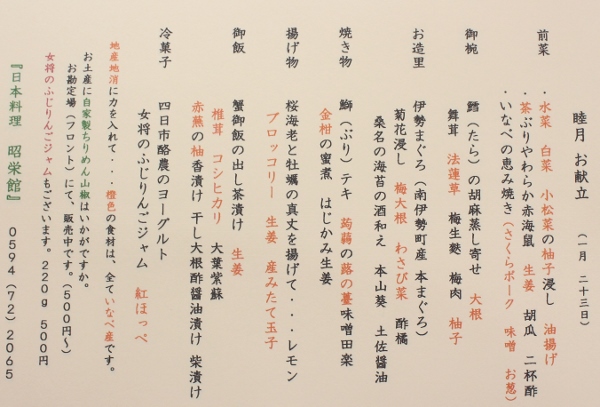 睦月 お献立 (一月 二十三日)
前菜 ・水菜 白菜 小松菜の柚子浸し 油揚げ
・茶ぶりやわらか赤海鼠 生姜 胡瓜 二杯酢
・いなべの恵み焼き(さくらポーク 味噌 お葱)
御椀 鱈(たら)の胡麻蒸し寄せ 大根
舞茸 法蓮草 梅生麩 梅肉 柚子
お造里 伊勢まぐろ(南伊勢町産 本まぐろ)
菊花浸し 梅大根 わさび菜 酢橘
桑名の海苔の酒和え 本山葵 土佐醤油
焼き物 鰤(ぶり)テキ 蒟蒻の蕗の薹味噌田楽
金柑の蜜煮 はじかみ生姜
揚げ物 桜海老と牡蠣の真丈を揚げて・・・レモン
ブロッコリー 生姜 産みたて玉子
御飯 蟹御飯の出し茶漬け 生姜
椎茸 コシヒカリ 大葉紫蘇
赤蕪の柚香漬け 干し大根酢醤油漬け 柴漬け
冷菓子 四日市酪農のヨーグルト
女将のふじりんごジャム 紅ほっぺ
地産地消に力を入れて・・橙色の食材は、全ていなべ産です。
お土産に自家製ちりめん山椒はいかがですか。
お勘定場(フロント)にて、販売中です。(500円~)
女将のふじりんごジャムもございます。220g 500円
『日本料理 昭栄館』 0594(72)2065